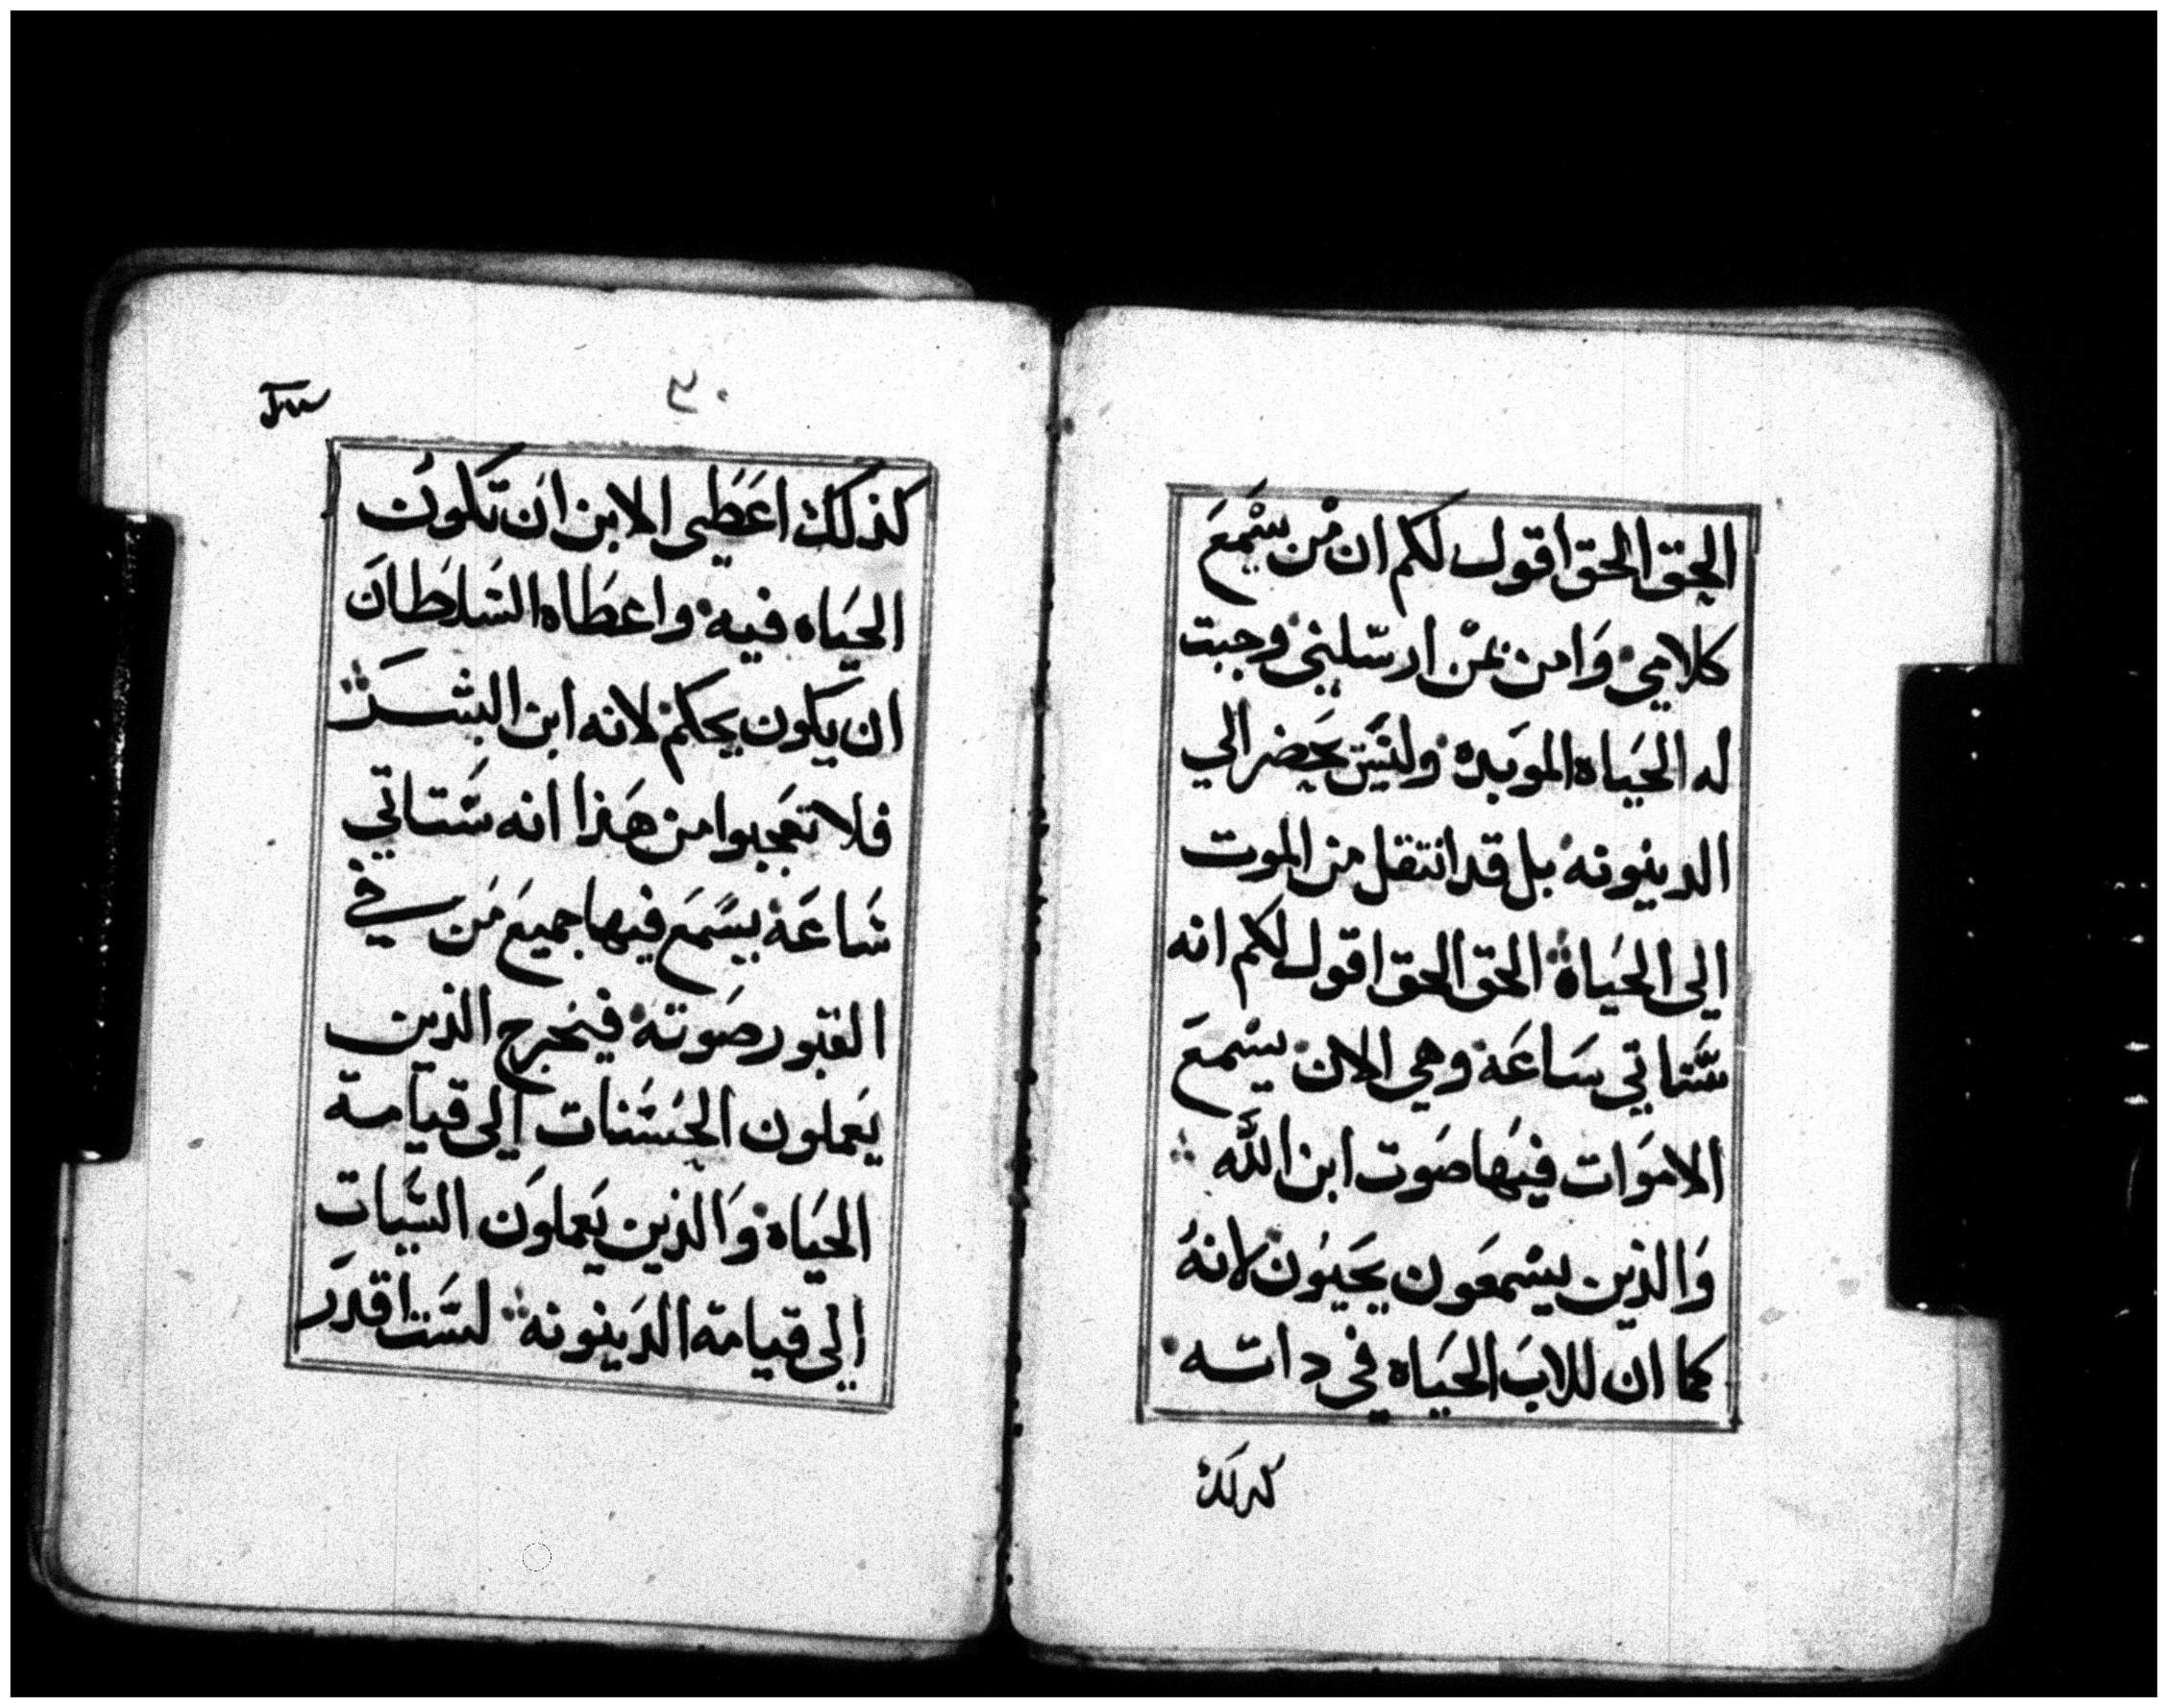 الحق الحق اقول لكم ان من يسمع
كلامي وامن بمن ارسلني وجبت
له الحياه الموبده وليس يحضر الي
الدينونه بل قد انتقل من الموت
الى الحياة الحق الحق اقول لكم انه
ستاتي ساعة وهي الان يسمع
الاموات فيها صوت ابن الله
والذين يسمعون يحيون لانه
كما ان للاب الحياه في داته
كدلك
٣٠
كذلك اعطي الابن ان تكون
الحياه فيه واعطاه السلطان
ان يكون يحكم لانه ابن البشر
فلا تعجبوا من هذا انه ستاتي
ساعة يسمع فيها جميع من في
القبور صوته فيخرج الذين
يعملون الحسنات الى قيامة
الحياه والذين يعملون السيات
الى قيامة الدينونه لست اقدر